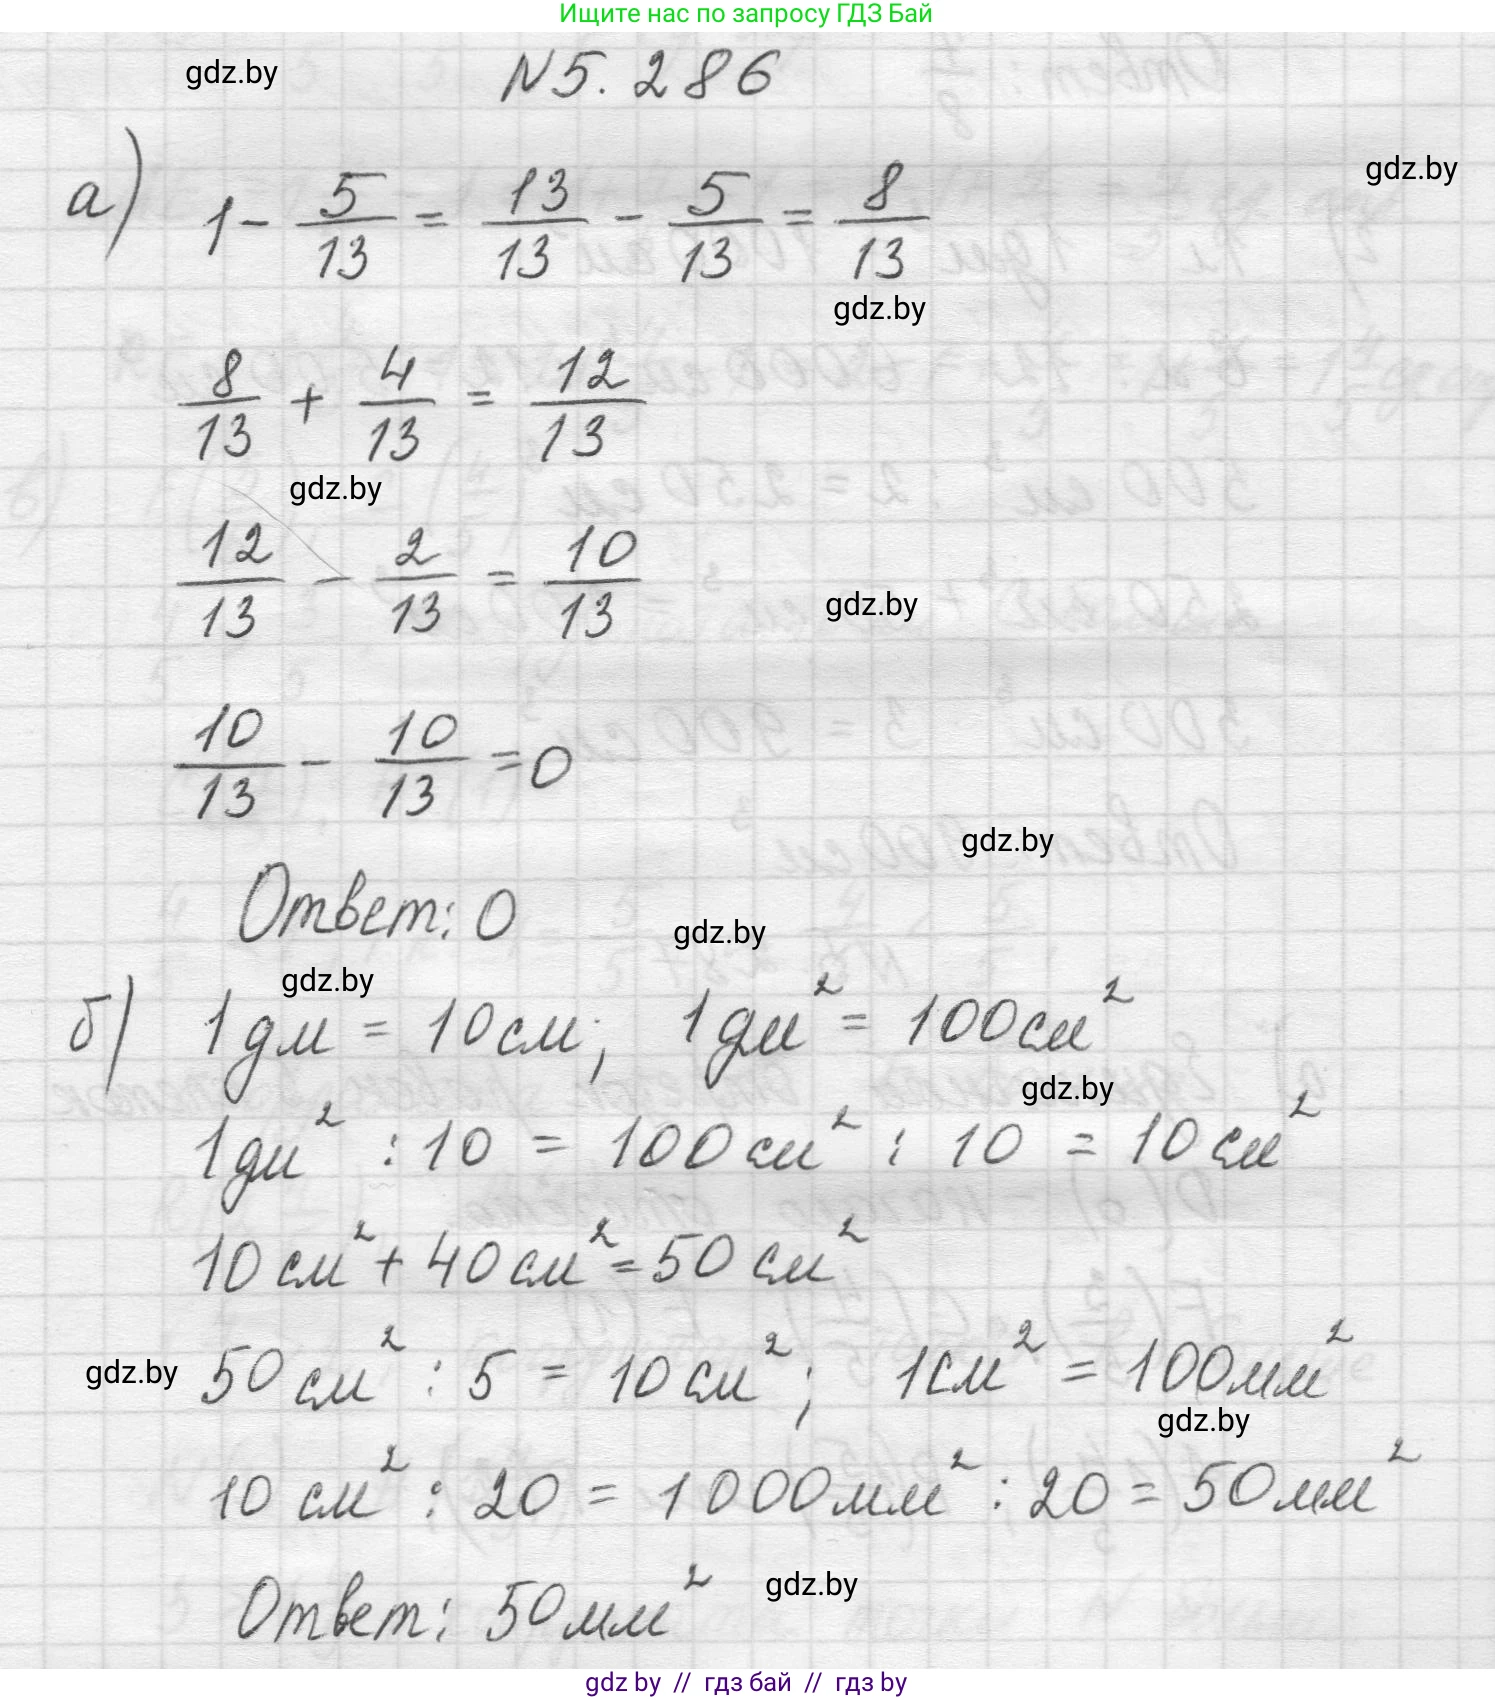 Ищите нас по запросу ГДЗ Бай
gdz.by
N5.286
а) 1 - 5/13 = 13/13 - 5/13 = 8/13
gdz.by
gdz.by
8/13 + 4/13 = 12/13
gdz.by
12/13 - 2/13 = 10/13
gdz.by
10/13 - 10/13 = 0
gdz.by
Ответ: 0
gdz.by
gdz.by
б) 1дм = 10см; 1дм² = 100см²
gdz.by
1дм² : 10 = 100см² : 10 = 10см²
10см² + 40см² = 50см²
gdz.by
50см² : 5 = 10см²; 1см² = 100мм²
gdz.by
10см² : 20 = 1000мм² : 20 = 50мм²
Ответ: 50мм²
gdz.by
gdz by // гдз бай // гдз by